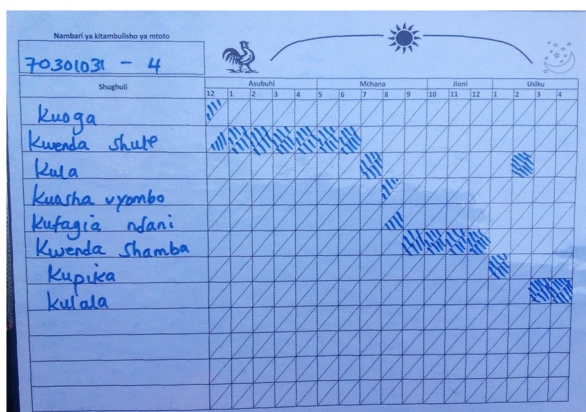 Nambari ya kitambulisho ya mtoto
70301031 - 4
Shughuli
Asubuhi Mchana Jioni Usiku
12 1 2 3 4 5 6 7 8 9 10 11 12 1 2 3 4
Kuoga
Kwenda shule
Kula
Kuosha vyombo
Kufagia ndani
Kwenda Shamba
Kupika
Kulala